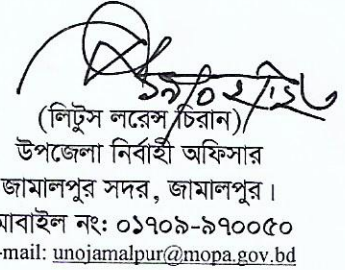 (লিটুস লরেন্স চিরান)
উপজেলা নির্বাহী অফিসার
জামালপুর সদর, জামালপুর।
মোবাইল নং: ০১৭০৯-৯৭০০৫০
e-mail: unojamalpur@mopa.gov.bd